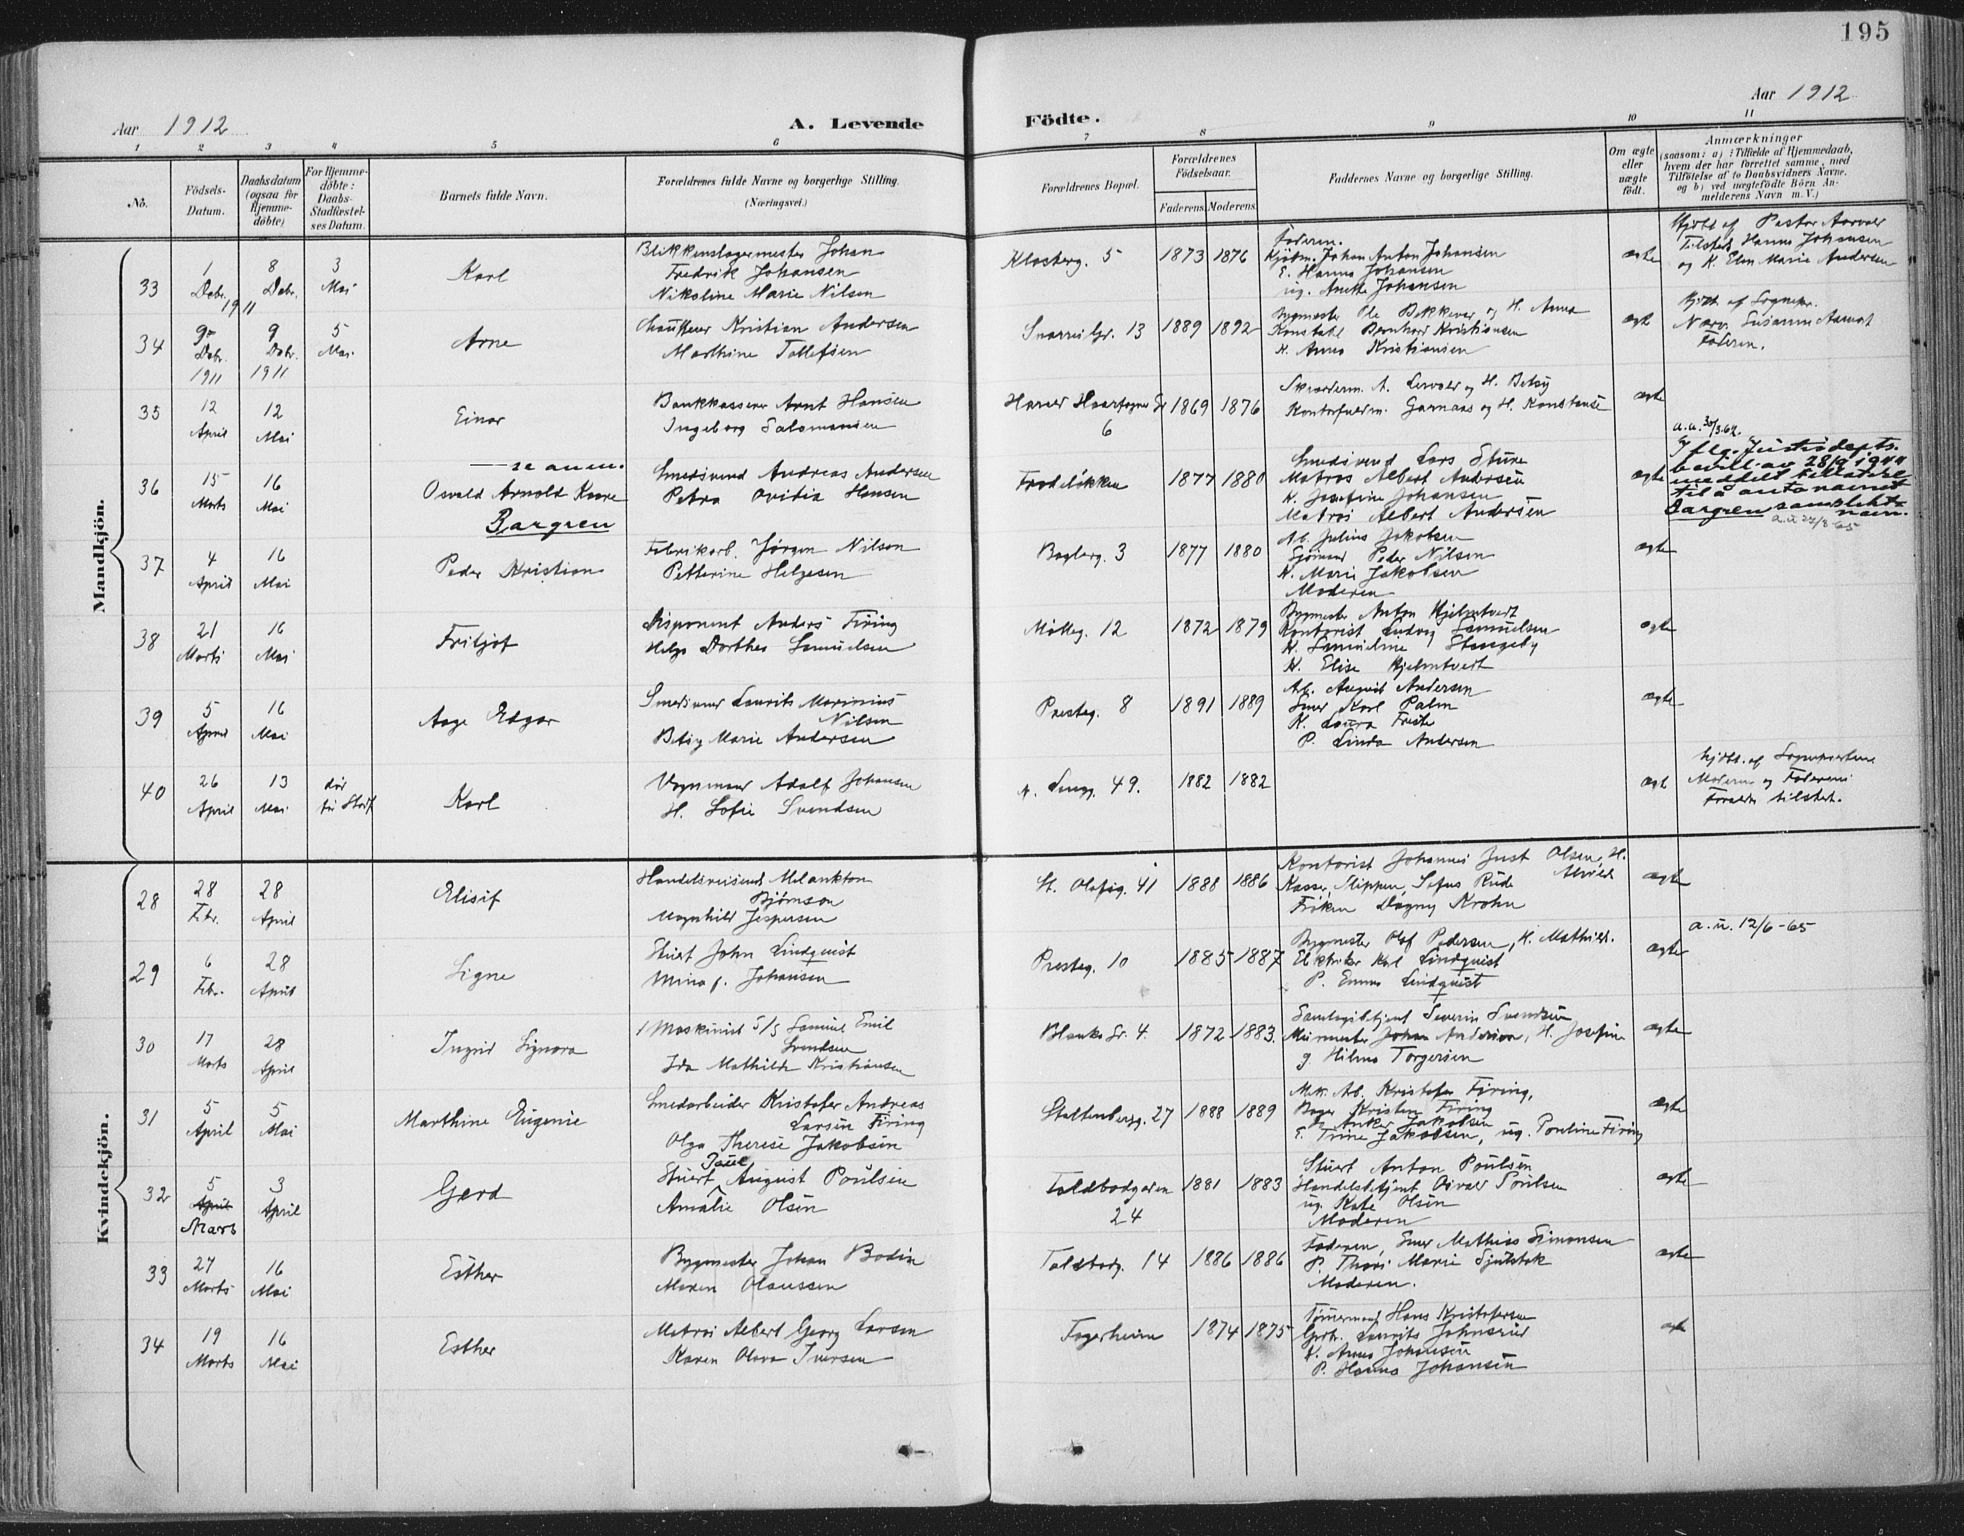 195
Aar 1912
A. Levende Födte.
Aar 1912
1 2 3 4 5 6 7 8 9 10 11
No.
Födsels-Datum.
Daabsdatum (ogsaa for Hjemme-döbte)
For Hjemme-döbte: Daabs-Stadfæstelses Datum.
Barnets fulde Navn.
Forældrenes fulde Navne og borgerlige Stilling.
(Næringsvei.)
Forældrenes Bopæl.
Forældrenes Födselsaar.
Faderens. Moderens.
Faddernes Navne og borgerlige Stilling.
Om ægte eller uægte födt.
Anmærkninger
(saasom: a) i Tilfælde af Hjemmedaab, hvem der har forrettet samme, med Tilföielse af to Daabsvidners Navne, og b) ved uægtefödte Börn Anmelderens Navn m. V.)
Mandkjön.
33
1 Debr. 1911
8 Debr.
3 Mai
Karl
Blikkenslagermester Johan
Fredrik Johansen
Nikoline Marie Nilsen
Klosterg. 5
1873 1876
Faderen.
Kjøbm. Johan Anton Johansen
E. Hanna Johansen
ug. Anette Johansen
ægte
Hjdbt af Pastor
Tilsted. Hanna Johansen
og K. Elen Marie Andersen
34
9 Debr. 1911
9 Debr. 1911
5 Mai
Arne
Chauffeur Kristian Andersen
Marthine Tollefsen
Snorresgr. 13
1889 1892
Bygmester Ole Bakkevar og H. Anna
Konstabl Bernhard Kristiansen
K. Anna Kristiansen
ægte
Hjdbt. af Sognepr.
Nærv. Susanne
Faderen.
35
12 April
12 Mai
Einar
Bankkasserer Arnt Hansen
Ingeborg Salomonsen
Harald Haarfagres Gd
6
1869 1876
Skrædderm. A. Lervold og H. Betsy
Kontorfuldm. Garnaas og H. Konstanse
ægte
36
15 Marts
16 Mai
— se anm.
Osvald Arnold Kaare
Bargren
Smedsvend Andreas Andersen
Petra Ovidia Hansen
Frodeløkken
1877 1880
Smedsvend Lars Sture
Matros Albert Andersen
K. Josefine Johansen
Matros Albert Andersen
ægte
a.u. 30/3 62.
Iflg. Justisdepts.
bevill. av 28/9 1944
meddelt tillatelse
til å anta navnet
Bargren som slekts-
navn.
37
4 April
16 Mai
Peder Kristian
Fabrikarb. Jørgen Nilsen
Petterine Helgesen
Baglerg. 3
1877 1880
Ab. Julius Jakobsen
Sjømand Peder Nilsen
K. Marie Jakobsen
Moderen
ægte
38
21 Marts
16 Mai
Fritjof
Disponent Anders Firing
Helga Dorthea Samuelsen
Mølleg. 12
1872 1879
Bygmester Anton Hjelmtvedt
Kontorist Ludvig Samuelsen
K. Samueline Stangeby
K. Elise Hjelmtvedt
ægte
39
5 April
16 Mai
Aage Edgar
Smedsvend Laurits Marinius
Nilsen
Betsy Marie Andersen
Presteg. 8
1891 1889
Ab. August Andersen
Smed Karl Palm
K. Laura
P. Linda Andersen
ægte
40
26 April
13 Mai
dør
Karl
Vognmand Adolf Johansen
H. Sofie Svendsen
N. Langg. 49.
1882 1882
ægte
hjdbt. af Sognepresten
Moderen og Faderens
Forældre tilstede.
Kvindekjön.
28
28 Febr.
28 April
Elisif
Handelsreisende Melankton
Bjørnson
Magnhild Jespersen
St. Olafsg. 41
1888 1886
Kontorist Johannes Just Olsen, H.
Alvild
Kasser. Slippen, Sofus Rude
Frøken Dagny Krohn
ægte
29
6 Febr.
28 April
Signe
Stuert John Lindquist
Mina f. Johansen
Presteg. 10
1885 1887
Bygmester Olaf Pedersen, H. Mathild.
Elektriker Karl Lindquist
P. Emma Lindquist
ægte
a.u. 12/6-65
30
17 Marts
28 April
Ingrid Signora
1 Maskinist S/S Samuel Emil
Svendsen
Ida Mathilde Kristiansen
Blanke Gr. 4.
1872 1883.
Samlagsbetjent Severin Svendsen
Murmester Johan Andersen, H. Josefine
g. Hilma Torgersen
ægte
31
5 April
5 Mai
Marthine Eugenie
Smedarbeider Kristofer Andreas
Larsen Firing
Olga Therese Jakobsen
Stoltenbergg. 27
1888 1889
Mek. Ab. Kristofer Firing,
Bager Kristen Firing
Anker Jakobsen
E. Trine Jakobsen, ug. Pouline Firing
ægte
32
5 April Mars
3 April
Gerd
Poul
Stuert August Poulsen
Amalie Olsen
Toldbodgaden
24
1881 1883
Stuert Anton Poulsen
Handelsbetjent Osvald Poulsen
ug. Kate Olsen
Moderen
ægte
33
27 Marts
16 Mai
Esther
Bygmester Johan Bodin
Maren Olaussen
Toldbodg. 14
1886 1886
Faderen, Smed Mathias Simonsen
P. Thora Marie
Moderen.
ægte
34
19 Marts
16 Mai
Esther
Matros Albert Georg Larsen
Karen Olava Iversen
Fagerheim
1874 1875
Tømmermand Hans Kristofersen
Laurits Johnsrud
K. Anna Johansen
P. Hanna Johansen
ægte